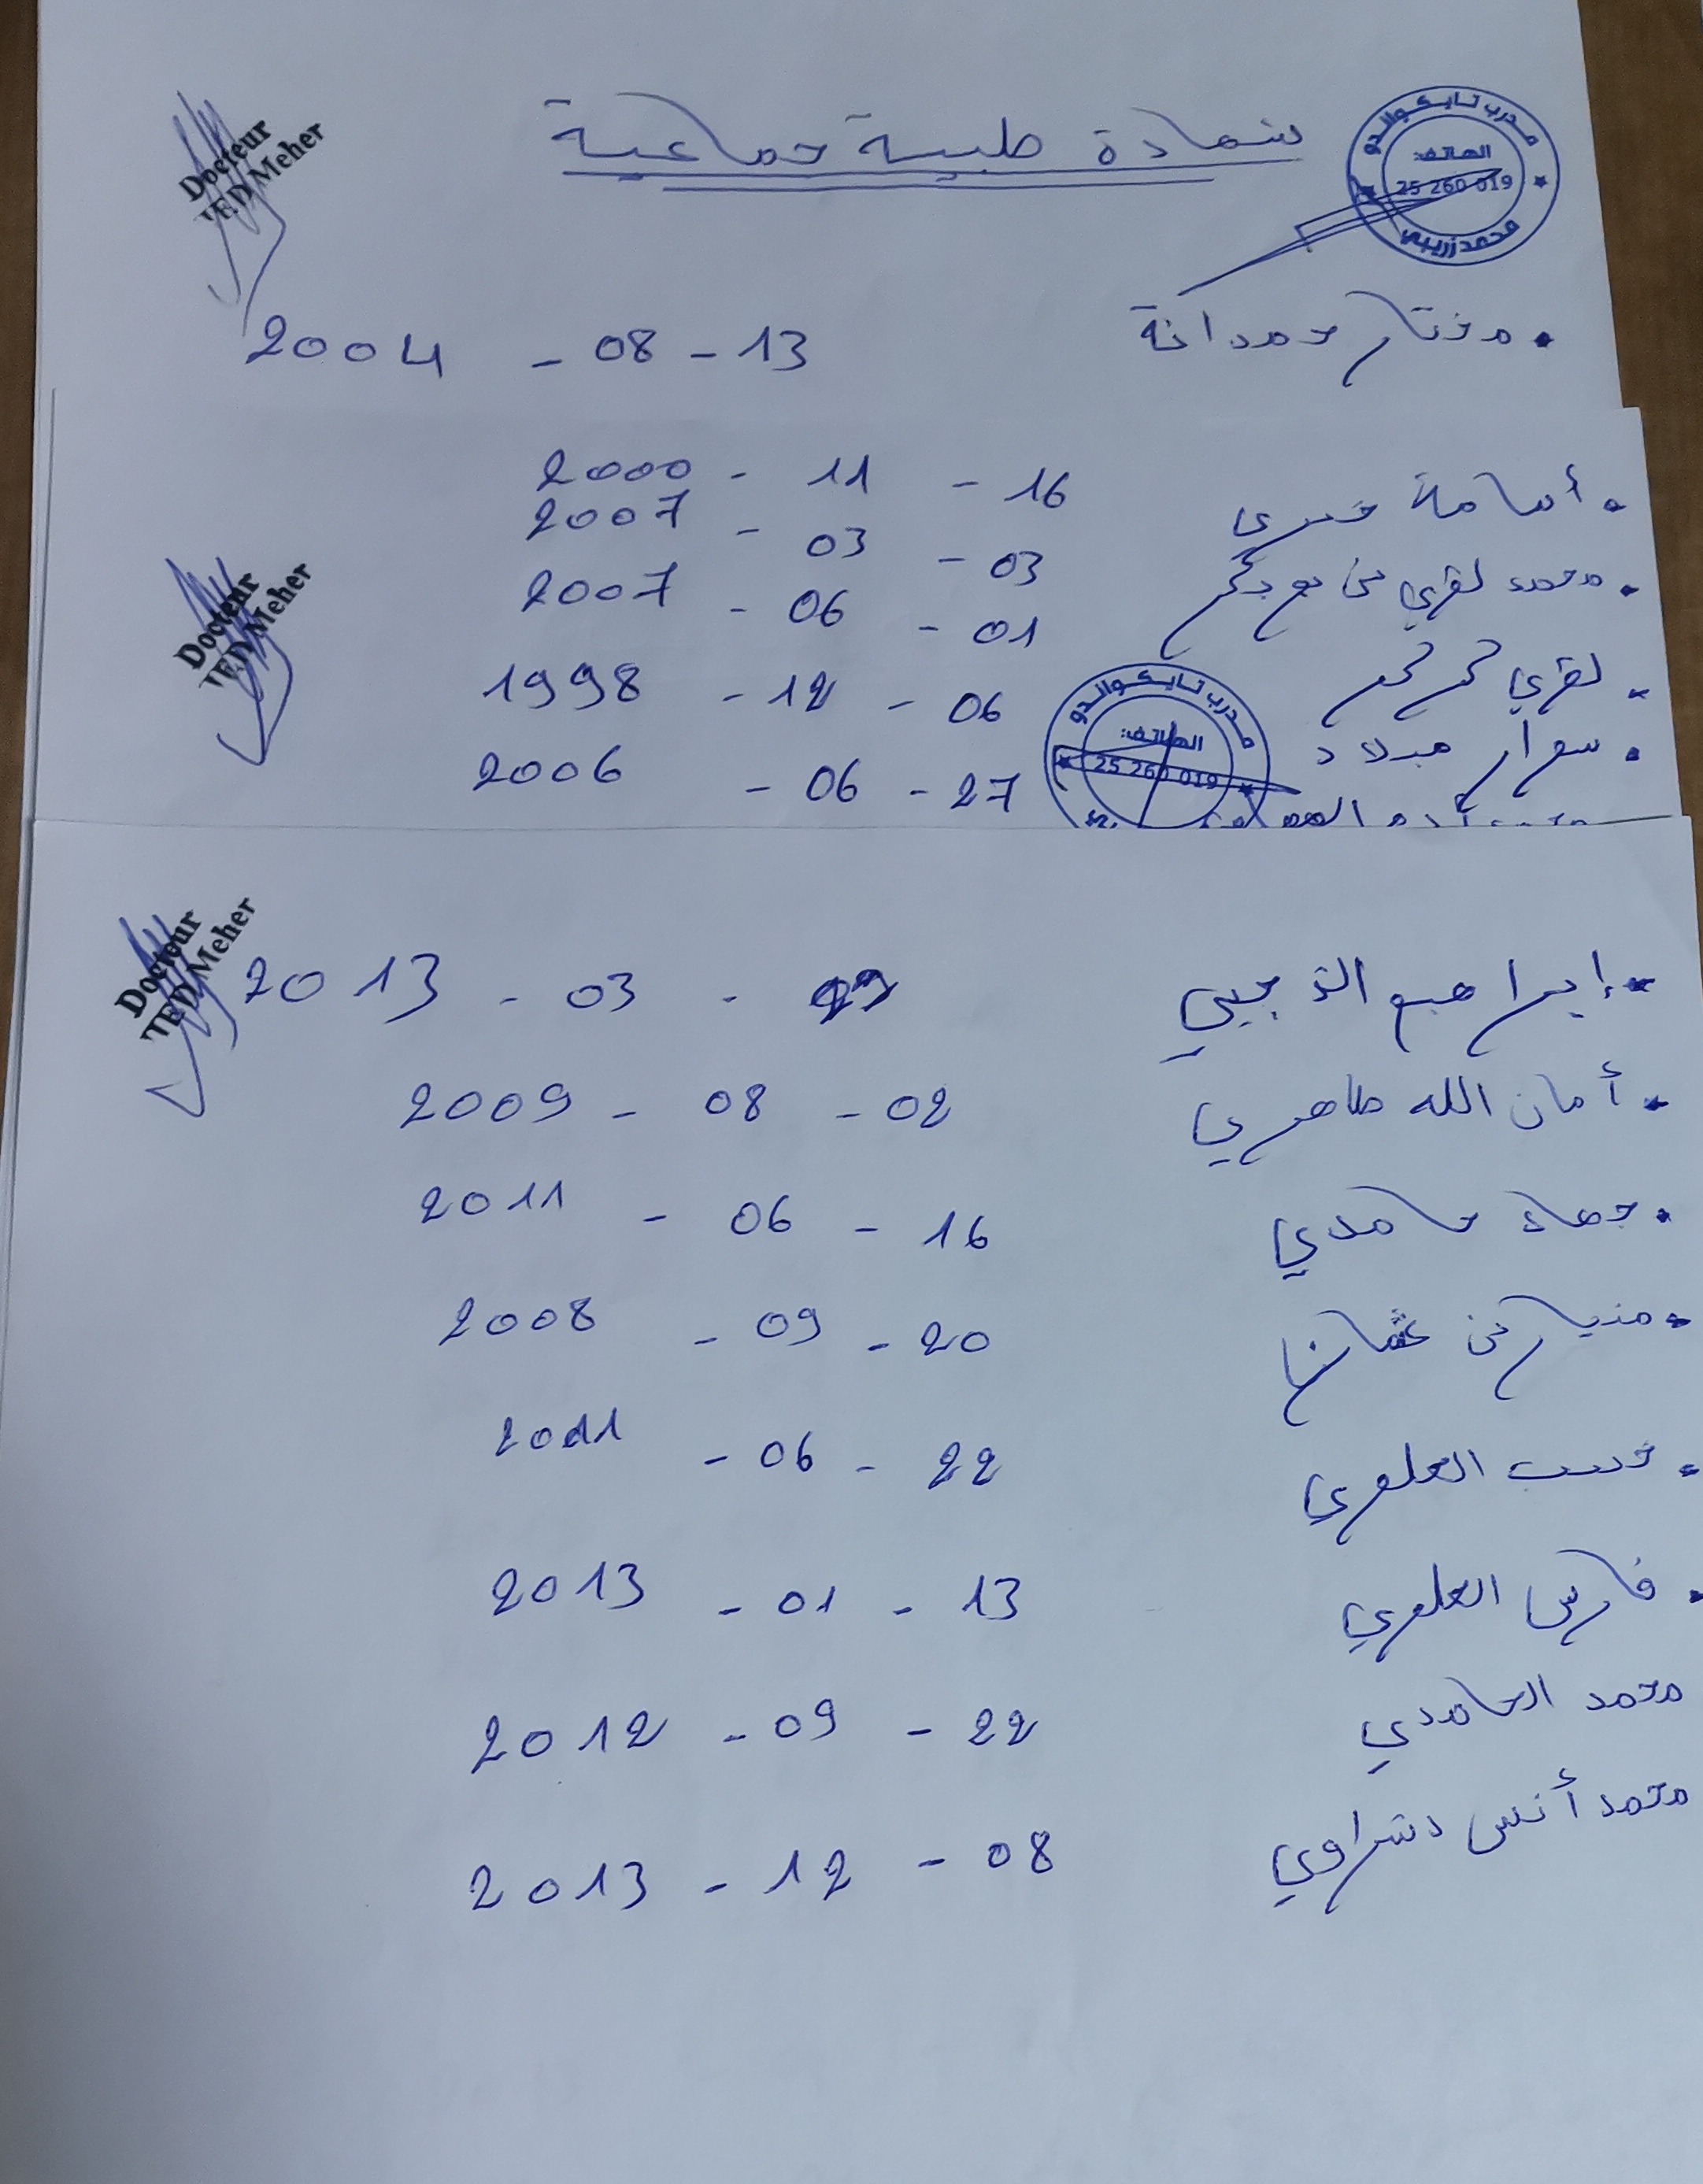 شهادة طبية جماعية
مدرب تايكواندو
الهاتف:
25 260 019
محمد زريبي
Docteur
Meher
مختار حمدانة 13 - 08 - 2004
أسامة 16 - 11 - 2000
محمد لغزي بن بوبكر 03 - 03 - 2007
لغزي 01 - 06 - 2007
سوار ميلاد 06 - 12 - 1998
27 - 06 - 2006
مدرب تايكواندو
الهاتف:
25 260 019
Docteur
Meher
Docteur
Meher
إبراهيم الذيبي - 03 - 2013
أمان الله طاهري 02 - 08 - 2009
جهاد حامدي 16 - 06 - 2011
بن عثمان 20 - 09 - 2008
العلوي 22 - 06 - 2011
فارس العلوي 13 - 01 - 2013
محمد الحامدي 22 - 09 - 2012
محمد أنس دشراوي 08 - 12 - 2013